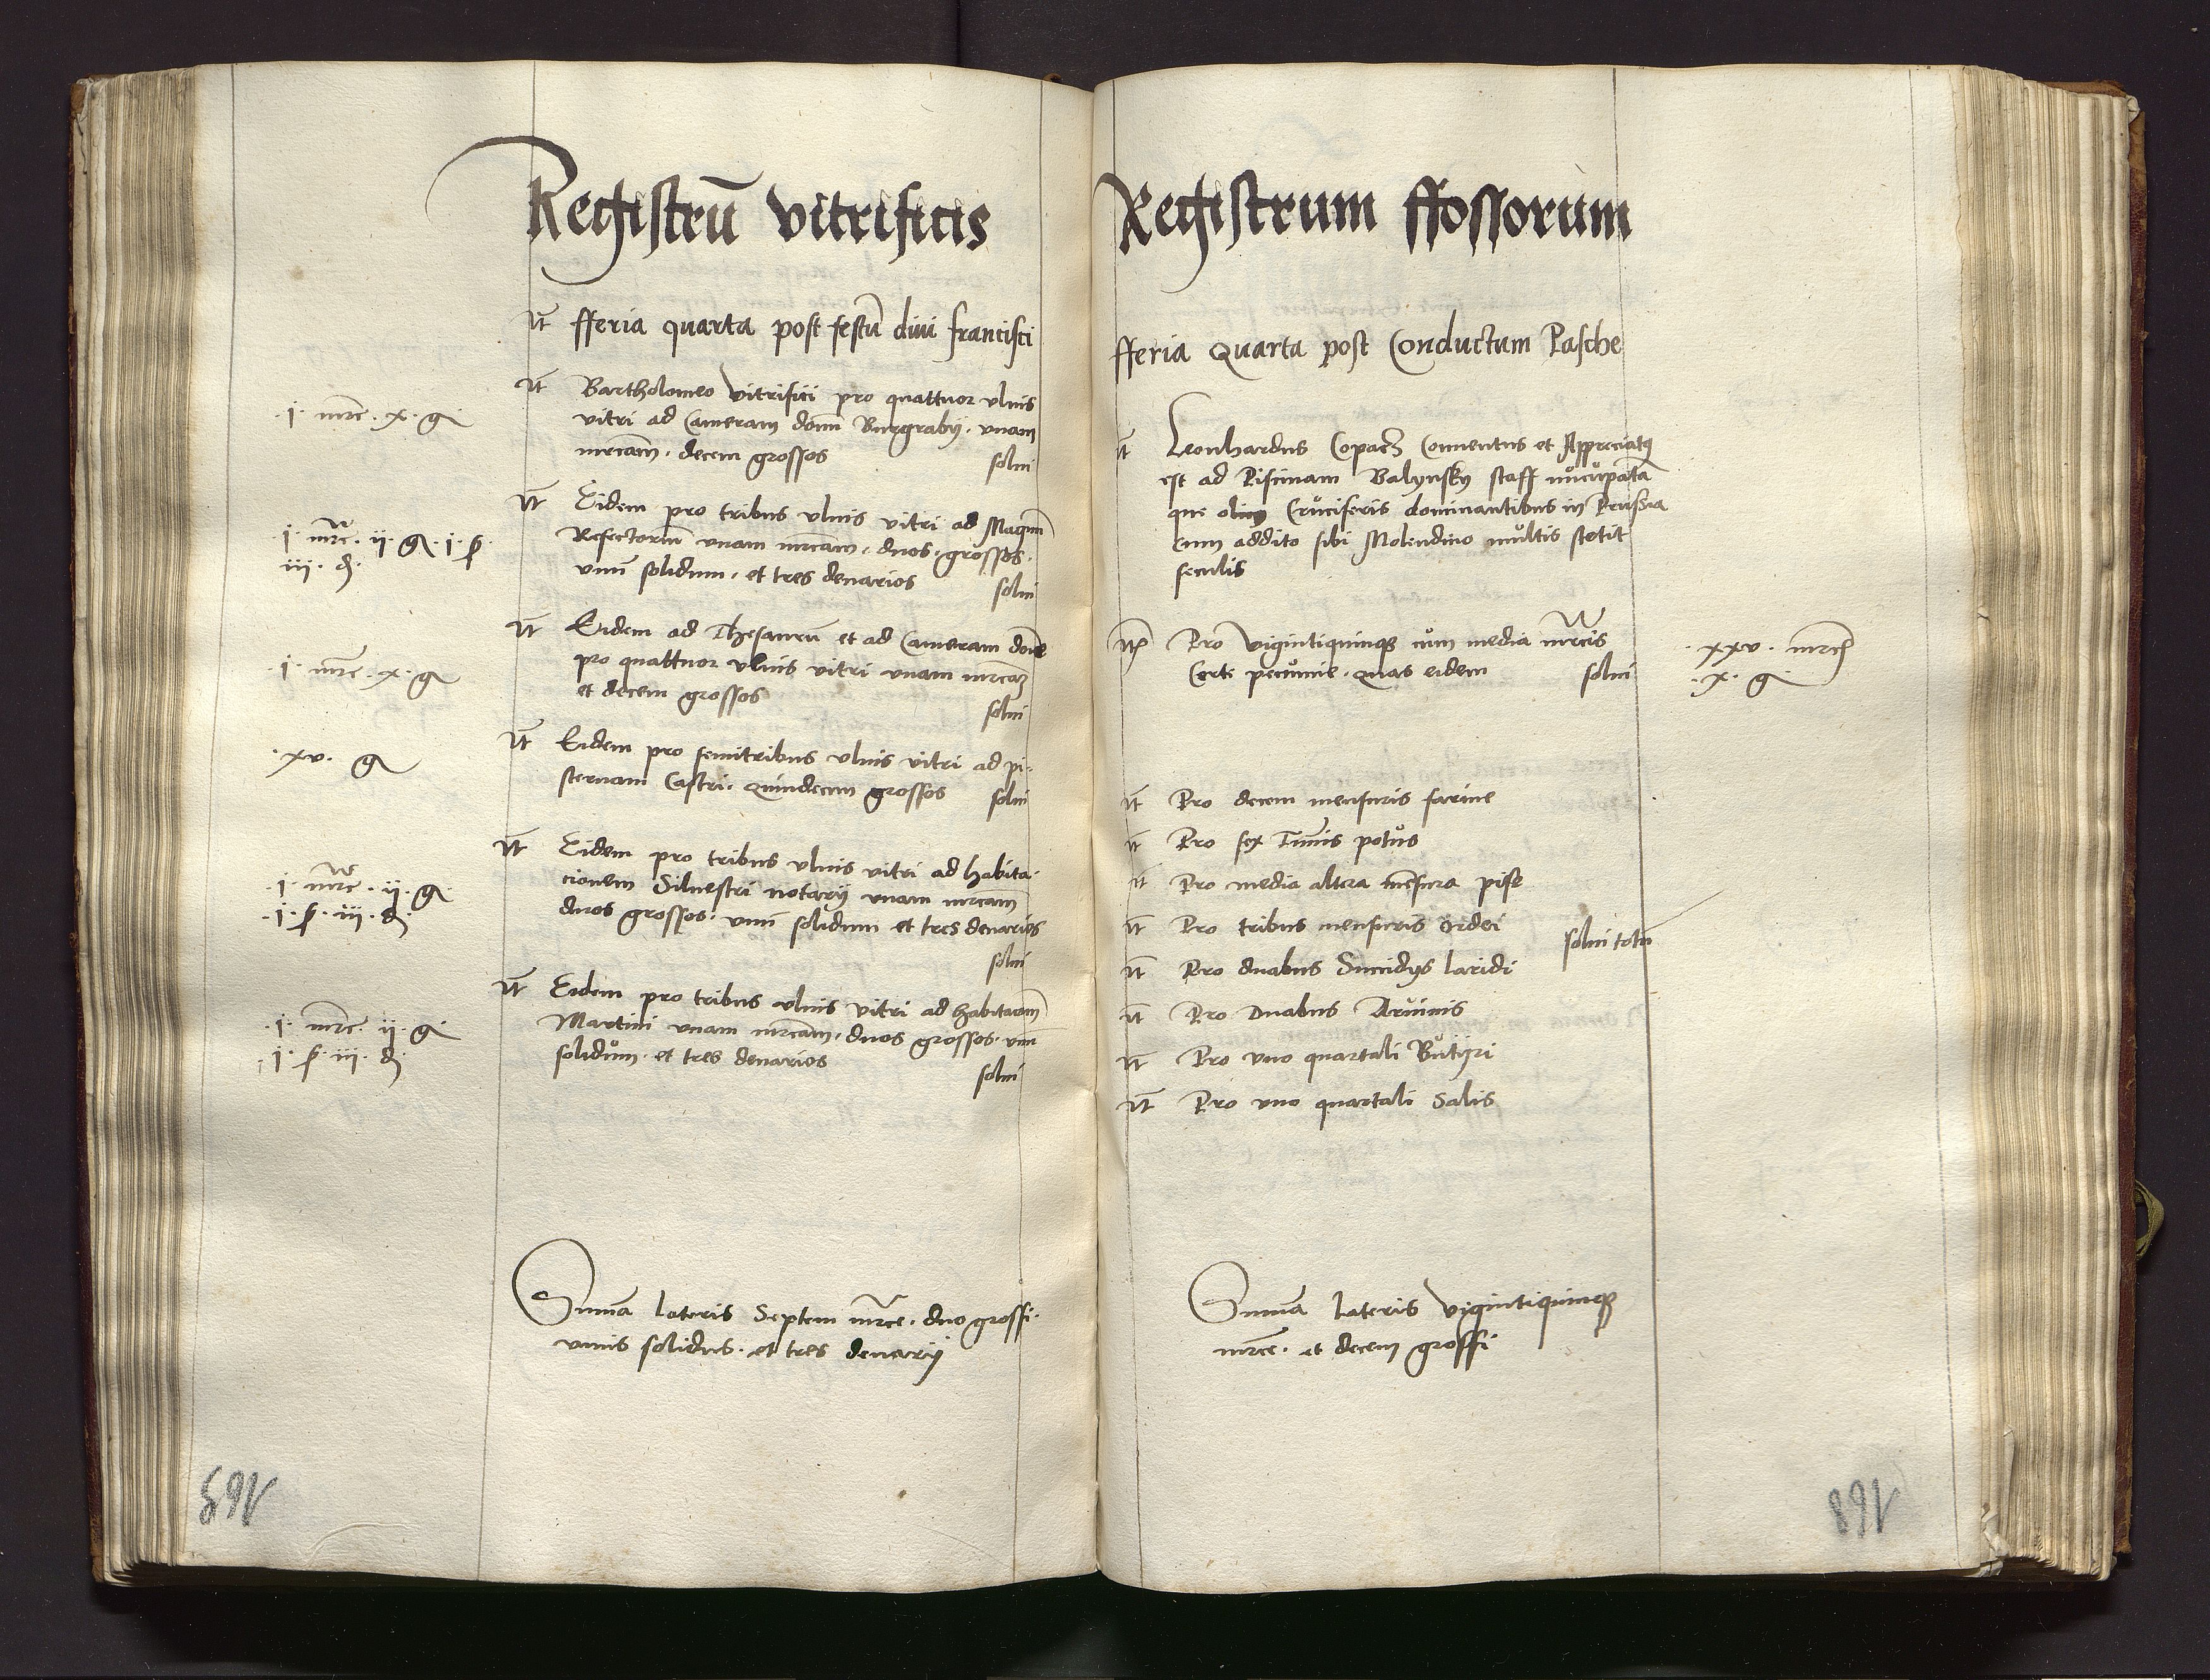 Registrū vitrificis
It̄ fferia quarta post festū diui francisci
·j· mrc̄ · x · g̶
It̄ Bartholomeo vitrifici pro quattuor vlnis
vitri ad Cameram domī Burgrabij · vnam
mrcam̄ · decem grossos
solui
·j· mrc̄ · ij · g̶ · j · s̶
iij · d̶ ·
It̄ Eidem pro tribus vlnis vitri ad Magnū
Refectoriū vnam mrcam̄ · duos · grossos ·
vnū solidum · et tres denarios
solui
·j· mrc̄ · x · g̶
It̄ Eidem ad Thesaurū et ad Cameram
pro quattuor vlnis vitri vnam mrcam̄
et decem grossos
solui
· xv · g̶
It̄ Eidem pro semitribus vlnis vitri ad pi-
sternam Castri · quindecim grossos
solui
·j· mrc̄ · ij · g̶ ·
·j· s̶ · iij · d̶
It̄ Eidem pro tribus vlnis vitri ad habita-
cionem Siluestri notarij vnam mrcam̄
duos grossos · vnū solidum et tres denarios
solui
·j· mrc̄ · ij · g̶ ·
·j· s̶ · iij · d̶
It̄ Eidem pro tribus vlnis vitri ad habitacōm̄
Martini vnam mrcam̄ · duos grossos · vnū
solidum · et tres denarios
solui
Summa lateris Septem mrce · duo grossi ·
vnus solidus · et tres denarij
169
Registrum ffossorum
fferia Quarta post Conductum Pasche
It̄ Leonhardus Copacz Conuentus et Appreciatꝰ
est ad Piscinam Balynsky staff nūcupatā
que olim Cruciferis dominantibus in Prussia
cum addito sibi Molendino multis stetit
seculis
It̄ Pro vigintiquinqꝫ cum media mrcis
Certe pecunie · quas eidem
solui
· xxv · mrc̄
· x · g̶
It̄ Pro decem mensuris farine
It̄ Pro sex Tunnis potus
It̄ Pro media altera mēsura pise
It̄ Pro tribus mensuris ordei
solui totū
It̄ Pro duabus Succidijs laridi
It̄ Pro Duabus Aruinis
It̄ Pro vno quartali Butijri
It̄ Pro vno quartali Salis
Summa lateris vigintiquinqꝫ
mrce · et decem grossi
168